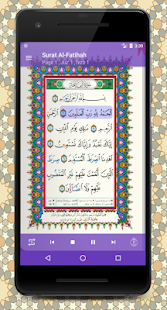 Surat Al-Fatihah
Page 1, Juz 1,
بِسْمِ اللَّهِ الرَّحْمَٰنِ الرَّحِيمِ
الْحَمْدُ لِلَّهِ رَبِّ الْعَٰلَمِينَ
الرَّحْمَٰنِ الرَّحِيمِ مَٰلِكِ يَوْمِ الدِّينِ
إِيَّاكَ نَعْبُدُ وَإِيَّاكَ نَسْتَعِينُ
اهْدِنَا الصِّرَٰطَ الْمُسْتَقِيمَ
صِرَٰطَ الَّذِينَ أَنْعَمْتَ عَلَيْهِمْ غَيْرِ الْمَغْضُوبِ
عَلَيْهِمْ وَلَا الضَّالِّينَ